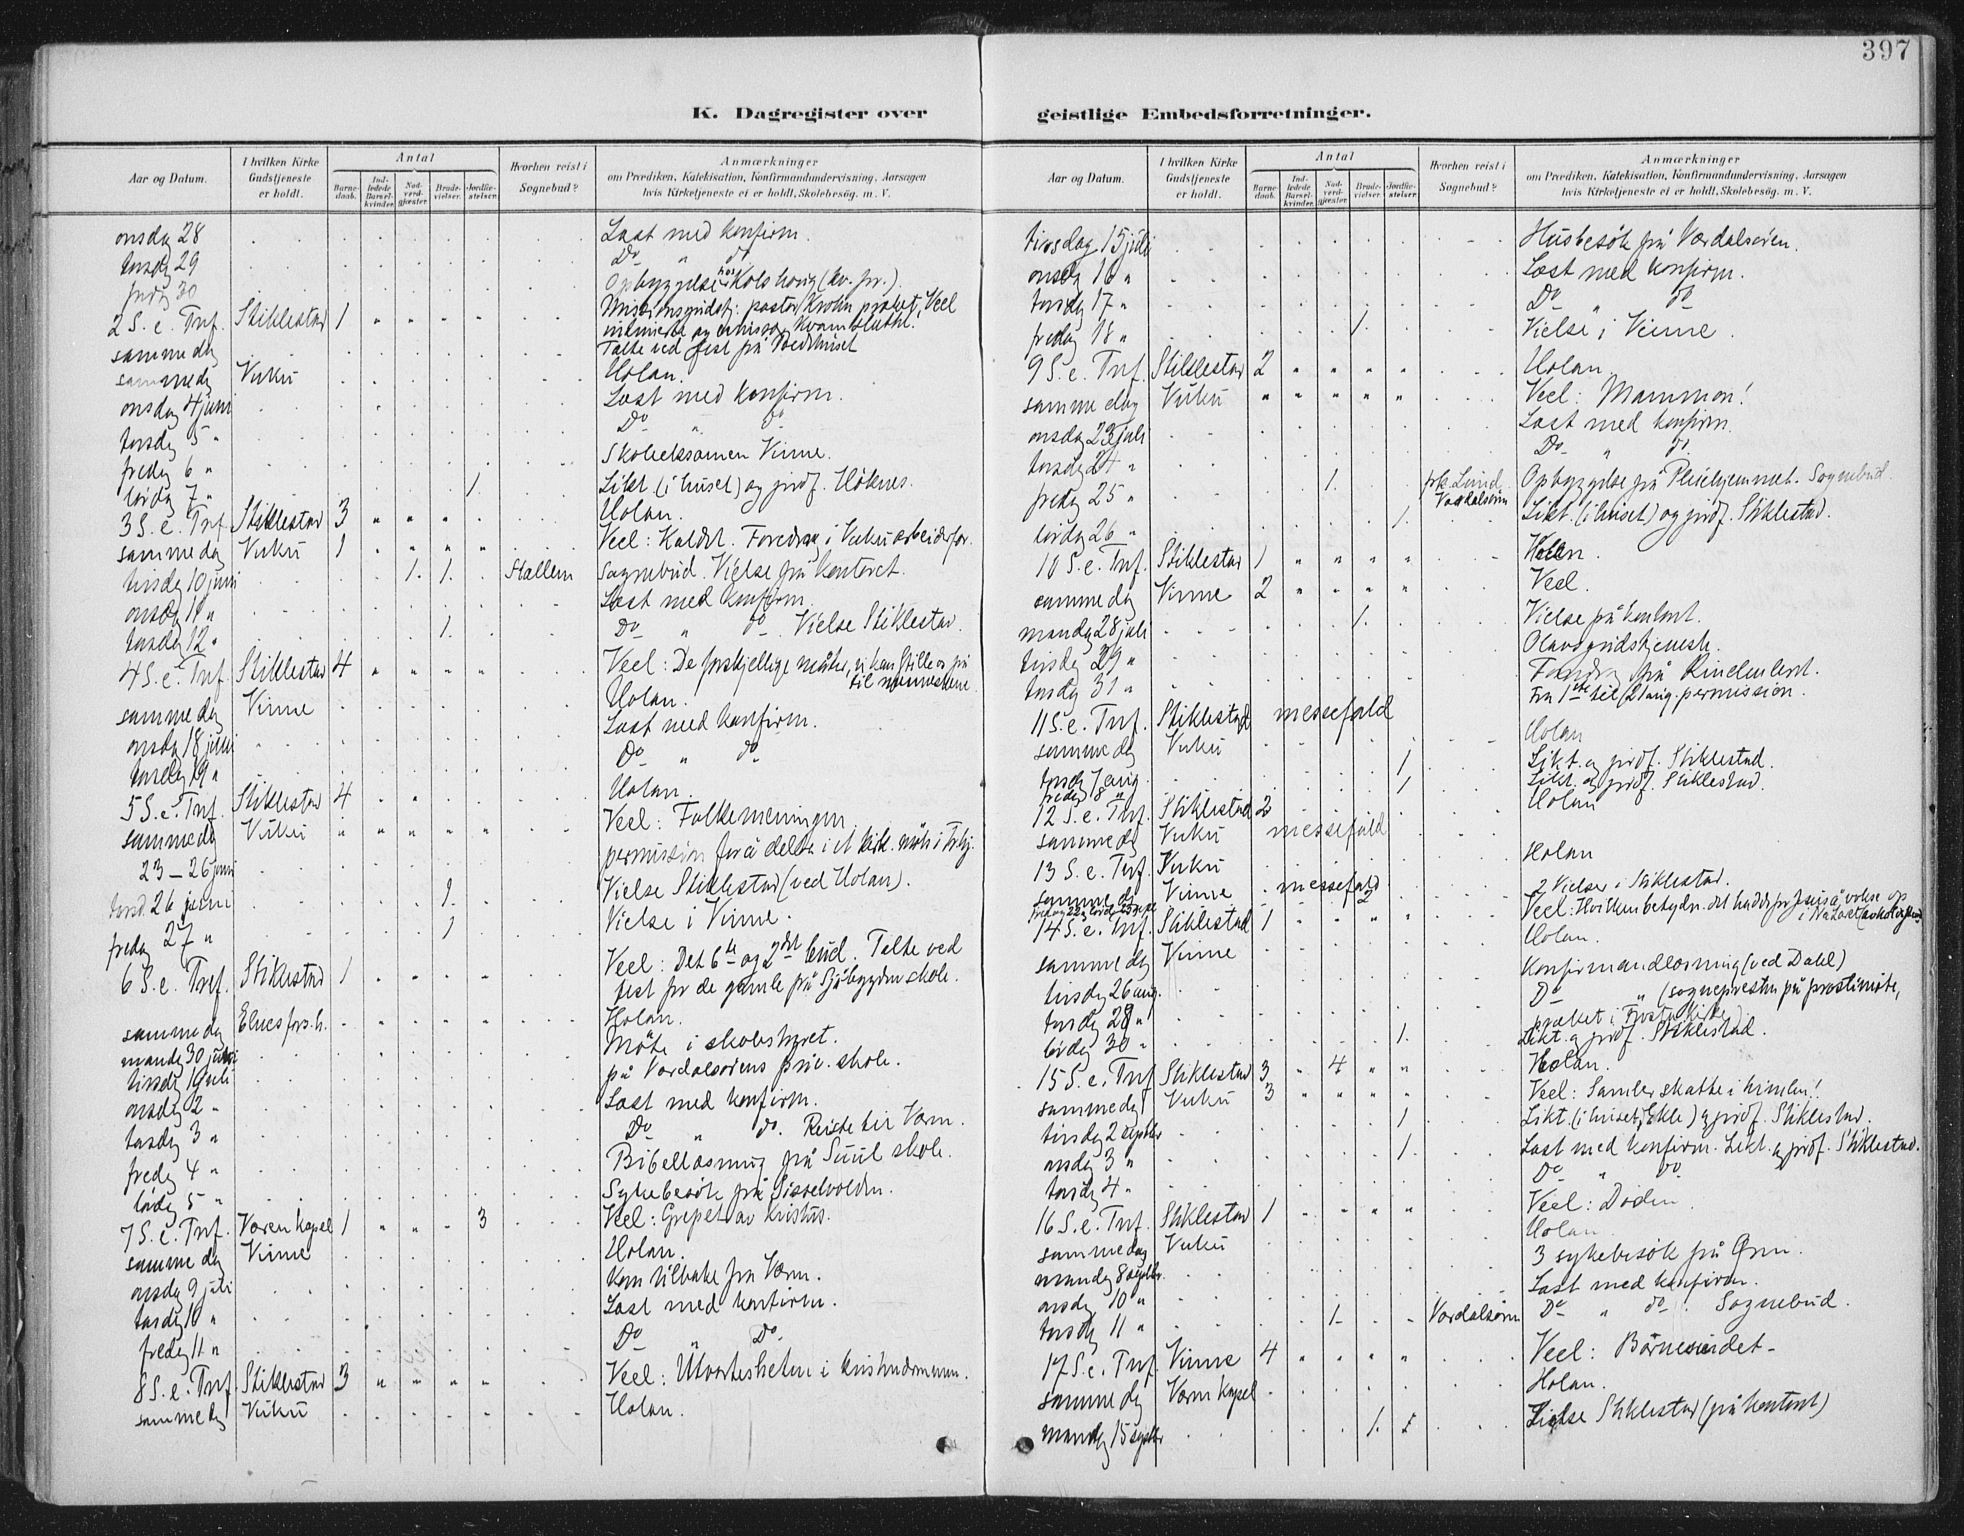 397
K. Dagregister over geistlige Embedsforretninger.
Aar og Datum.
I hvilken Kirke Gudstjeneste er holdt.
Antal
Barnedaab.
Indledede Barselkvinder.
Nadverdgjester.
Brudevielser.
Jordfæstelser.
Hvorhen reist i Sognebud?
Anmærkninger
om Prædiken, Katekisation, Konfirmandundervisning, Aarsagen
hvis Kirketjeneste ei er holdt, Skolebesög. m. V.
onsdag 28 Læst med konfirm.
torsdg 29 Do " do
fredg 30 Opbyggelse hos Kolshaug (kv. fr.).
2 S. e. Tref. Stiklestad 1 " " " " pastor Krohn præket, Veel
samme dg Talte ved fest på Bedehuset
samme dg Vuku Holan.
onsdag 4 juni Læst med konfirm.
torsdg 5 " Do " do
fredg 6 " Skoleeksamen Vinne.
lördg 7 " 1 Likt. (i huset) og jordf. Höknes.
3 S. e. Tref. Stiklestad 3 " " " Holan.
samme dag Vuku 1 " " " " Veel: Kaldet. Foredrag i Vuku arbeiderfor.
tirsdg 10 juni 1. 1. Stallem Sognebud. Vielse på kontoret.
onsdg 11 " Læst med konfirm.
torsdg 12 " 1. Do " do Vielse Stiklestad.
4 S. e. Tref. Stiklestad 4 " " " " Veel: De forskjellige måter, vi kan stille os på
til menneskene
samme dag Vinne Holan.
onsdg 18 juni Læst med konfirm.
torsdg 19 " Do " do
5 S. e. Tref. Stiklestad 4 " " Holan.
samme dg Vuku " " " " " Veel: Folkemeningen.
23 – 26 juni permission for å delta i et kirk. möte i Trhj.
torsd. 26 juni 1. Vielse Stiklestad (ved Holan).
fredag 27 " 1 Vielse i Vinne.
6 S. e. Tref. Stiklestad 1 " " " Veel: Det 6te og 2det bud. Talte ved
fest for de gamle på Sjöbygden skole.
samme dg Elnes fors.h. Holan.
mandg 30 juni Möte i skolestyret.
tirsdg 1 juli på Værdalsörens priv. skole.
onsdg 2 " Læst med konfirm.
torsdg 3 " Do " do. Reiste til Væren.
fredg 4 " Bibellæsning på Suul skole.
lördg 5 " Sykebesök på Sisselvolden.
7 S. e. Tref. Væren kapel 1 " " 3 Veel: Grepet av Kristus.
samme dg Vinne Holan.
onsdg 9 juli Kom tilbake fra Væren.
torsdg 10 " Læst med konfirm.
fredg 11 " Do " Do
8 S. e. Tref. Stiklestad 3 " " " " Veel: Utvortesheten i kristendommen.
samme dg Vuku Holan.
Aar og Datum.
I hvilken Kirke Gudstjeneste er holdt.
Antal
Barnedaab.
Indledede Barselkvinder.
Nadverdgjester.
Brudevielser.
Jordfæstelser.
Hvorhen reist i Sognebud?
Anmærkninger
om Prædiken, Katekisation, Konfirmandundervisning, Aarsagen
hvis Kirketjeneste ei er holdt, Skolebesög. m. V.
tirsdag 15 juli Husbesök på Værdalsören.
onsdg 16 " Læst med konfirm.
torsdg 17 " Do " do
fredg 18 " 1. Vielse i Vinne.
9 S. e. Tref. Stiklestad 2 " " " " Holan.
samme dag Vuku " " " " " Veel: Mammon!
onsdag 23 juli Læst med konfirm.
torsdg 24 " Do " do.
fredg 25 " 1. Lund Værdalsören Opbyggelse på Pleiehjemmet. Sognebud.
lördg 26 " 1. Likt. (i huset) og jordf. Stiklestad.
10 S. e. Tref. Stiklestad 1 " " " " Holan.
samme dg Vinne 2 " " " " Veel.
mandag 28 juli 1. Vielse på kontoret.
tirsdg 29 " Olavsgudstjeneste.
torsdg 31 " Foredrag på Rindenleret.
Fra 1ste til 21 aug. permission.
11 S. e. Tref. Stiklestad messefald
samme dg Vuku Holan
torsdg 7 aug. 1 Likt. og jordf. Stiklestad.
fredg 8 " 1 Likt. og jordf. Stiklestad.
12 S. e. Tref. Stiklestad 2 Holan
samme dg Vuku messefald
13 S. e. Tref. Vuku Holan
samme dg Vinne messefald
2 2 Vielser i Stiklestad.
14 S. e. Tref. Stiklestad 1 " " " " Veel: Hvilken betydn. det hadde for Jesus å vokse op
i Nasaret
samme dg Vinne Holan.
tirsdg 26 aug. Konfirmandlæsning (ved Dahl)
torsdg 28 " Do " (sognepresten på prostimöte,
præket i Frosta kirke)
lördg 30 " 1. Likt. og jordf. Stiklestad.
15 S. e. Tref. Stiklestad 3 " 4 " " Holan.
samme dg Vuku 3 " " " " Veel: Samler skatte i himlen!
tirsdg 2 septbr 1 Likt. (i huset, Ekle) og jordf. Stiklestad.
onsdg 3 " 1. Læst med konfirm. Likt. og jordf. Stiklestad.
torsdg 4 " Do " do
16 S. e. Tref. Stiklestad 1 " " " " Veel: Döden.
samme dag Vuku Holan.
mandag 8 septbr. 3 sykebesök på Ören.
onsdg 10 " Læst med konfirm.
torsdg 11 " 1. Værdalsören Do " do. Sognebud.
17 S. e. Tref. Vinne 4 " " " " Veel: Börnesindet.
samme dg Væren kapel Holan.
mandg 15 septbr 1. Vielse Stiklestad (på kontoret)